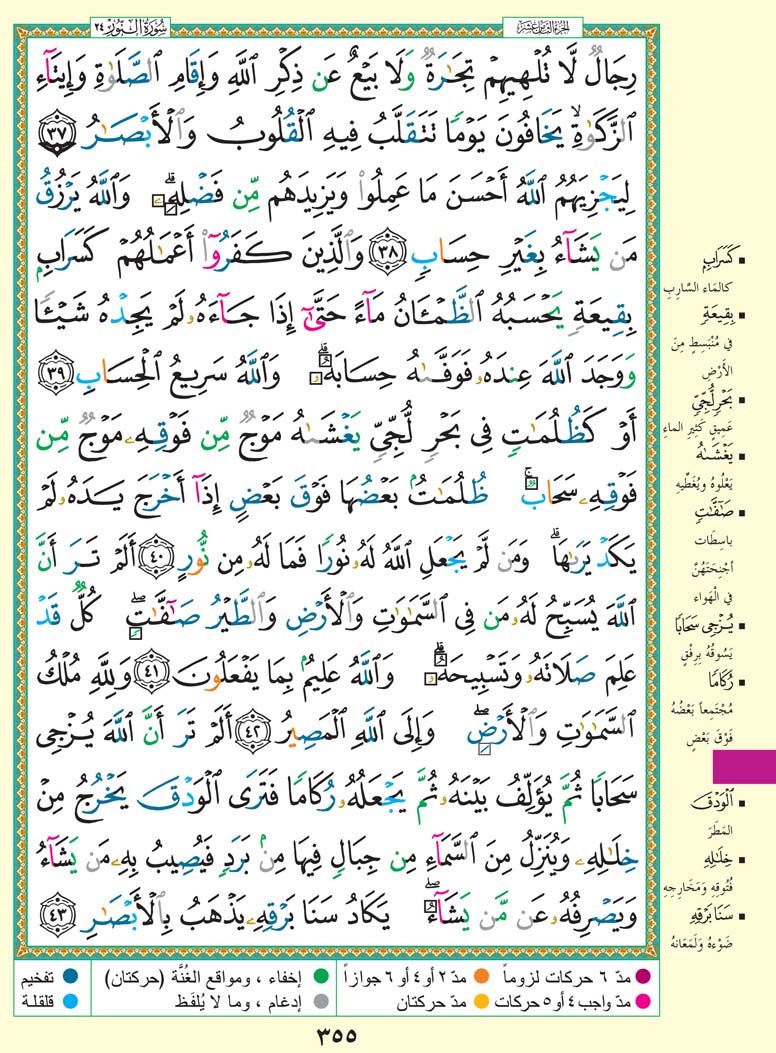 الجزء الثامن عشر
سُورَةُ النُّورِ ٢٤
رِجَالٌ لَّا تُلْهِيهِمْ تِجَٰرَةٌ وَلَا بَيْعٌ عَن ذِكْرِ ٱللَّهِ وَإِقَامِ ٱلصَّلَوٰةِ وَإِيتَآءِ
ٱلزَّكَوٰةِ ۙ يَخَافُونَ يَوْمًا تَتَقَلَّبُ فِيهِ ٱلْقُلُوبُ وَٱلْأَبْصَٰرُ ٣٧
لِيَجْزِيَهُمُ ٱللَّهُ أَحْسَنَ مَا عَمِلُوا۟ وَيَزِيدَهُم مِّن فَضْلِهِۦ ۗ وَٱللَّهُ يَرْزُقُ
مَن يَشَآءُ بِغَيْرِ حِسَابٍ ٣٨ وَٱلَّذِينَ كَفَرُوٓا۟ أَعْمَٰلُهُمْ كَسَرَابٍۭ
بِقِيعَةٍ يَحْسَبُهُ ٱلظَّمْـَٔانُ مَآءً حَتَّىٰٓ إِذَا جَآءَهُۥ لَمْ يَجِدْهُ شَيْـًٔا
وَوَجَدَ ٱللَّهَ عِندَهُۥ فَوَفَّىٰهُ حِسَابَهُۥ ۗ وَٱللَّهُ سَرِيعُ ٱلْحِسَابِ ٣٩
أَوْ كَظُلُمَٰتٍ فِى بَحْرٍ لُّجِّىٍّ يَغْشَىٰهُ مَوْجٌ مِّن فَوْقِهِۦ مَوْجٌ مِّن
فَوْقِهِۦ سَحَابٌ ۚ ظُلُمَٰتٌۢ بَعْضُهَا فَوْقَ بَعْضٍ إِذَآ أَخْرَجَ يَدَهُۥ لَمْ
يَكَدْ يَرَىٰهَا ۗ وَمَن لَّمْ يَجْعَلِ ٱللَّهُ لَهُۥ نُورًا فَمَا لَهُۥ مِن نُّورٍ ٤٠ أَلَمْ تَرَ أَنَّ
ٱللَّهَ يُسَبِّحُ لَهُۥ مَن فِى ٱلسَّمَٰوَٰتِ وَٱلْأَرْضِ وَٱلطَّيْرُ صَٰٓفَّٰتٍ ۖ كُلٌّ قَدْ
عَلِمَ صَلَاتَهُۥ وَتَسْبِيحَهُۥ ۗ وَٱللَّهُ عَلِيمٌۢ بِمَا يَفْعَلُونَ ٤١ وَلِلَّهِ مُلْكُ
ٱلسَّمَٰوَٰتِ وَٱلْأَرْضِ ۖ وَإِلَى ٱللَّهِ ٱلْمَصِيرُ ٤٢ أَلَمْ تَرَ أَنَّ ٱللَّهَ يُزْجِى
سَحَابًا ثُمَّ يُؤَلِّفُ بَيْنَهُۥ ثُمَّ يَجْعَلُهُۥ رُكَامًا فَتَرَى ٱلْوَدْقَ يَخْرُجُ مِنْ
خِلَٰلِهِۦ وَيُنَزِّلُ مِنَ ٱلسَّمَآءِ مِن جِبَالٍ فِيهَا مِنۢ بَرَدٍ فَيُصِيبُ بِهِۦ مَن يَشَآءُ
وَيَصْرِفُهُۥ عَن مَّن يَشَآءُ ۖ يَكَادُ سَنَا بَرْقِهِۦ يَذْهَبُ بِٱلْأَبْصَٰرِ ٤٣
■ كَسَرَابٍ
كالماء السَّارِبِ
■ بِقِيعَةٍ
في مُنْبَسِطٍ مِنَ
الأَرْضِ
■ بَحْرٍ لُّجِّيٍّ
عَمِيقٍ كَثِيرِ الماءِ
■ يَغْشَىٰهُ
يَعْلُوهُ ويُغَطِّيهِ
■ صَٰٓفَّٰتٍ
باسِطَات
أَجْنِحَتَهُنَّ
في الهَواء
■ يُزْجِى سَحَابًا
يَسُوقُهُ بِرِفْقٍ
■ رُكَامًا
مُجْتَمِعاً بَعْضُهُ
فَوْقَ بَعْضٍ
■ ٱلْوَدْقَ
المَطَرَ
■ خِلَٰلِهِ
فُتُوقِهِ وَمَخَارِجِهِ
■ سَنَا بَرْقِهِ
ضَوْءُهُ وَلَمَعَانُهُ
مدّ ٦ حركات لزوماً ● مدّ ٢ أو ٤ أو ٦ جوازاً ● إخفاء ، ومواقع الغُنَّة (حركتان) ● تفخيم
مدّ واجب ٤ أو ٥ حركات ● مدّ حركتان ● إدغام ، وما لا يُلفَظ ● قلقلة
٣٥٥